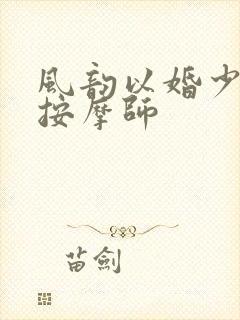 風韵以婚少
按摩師
苗劍